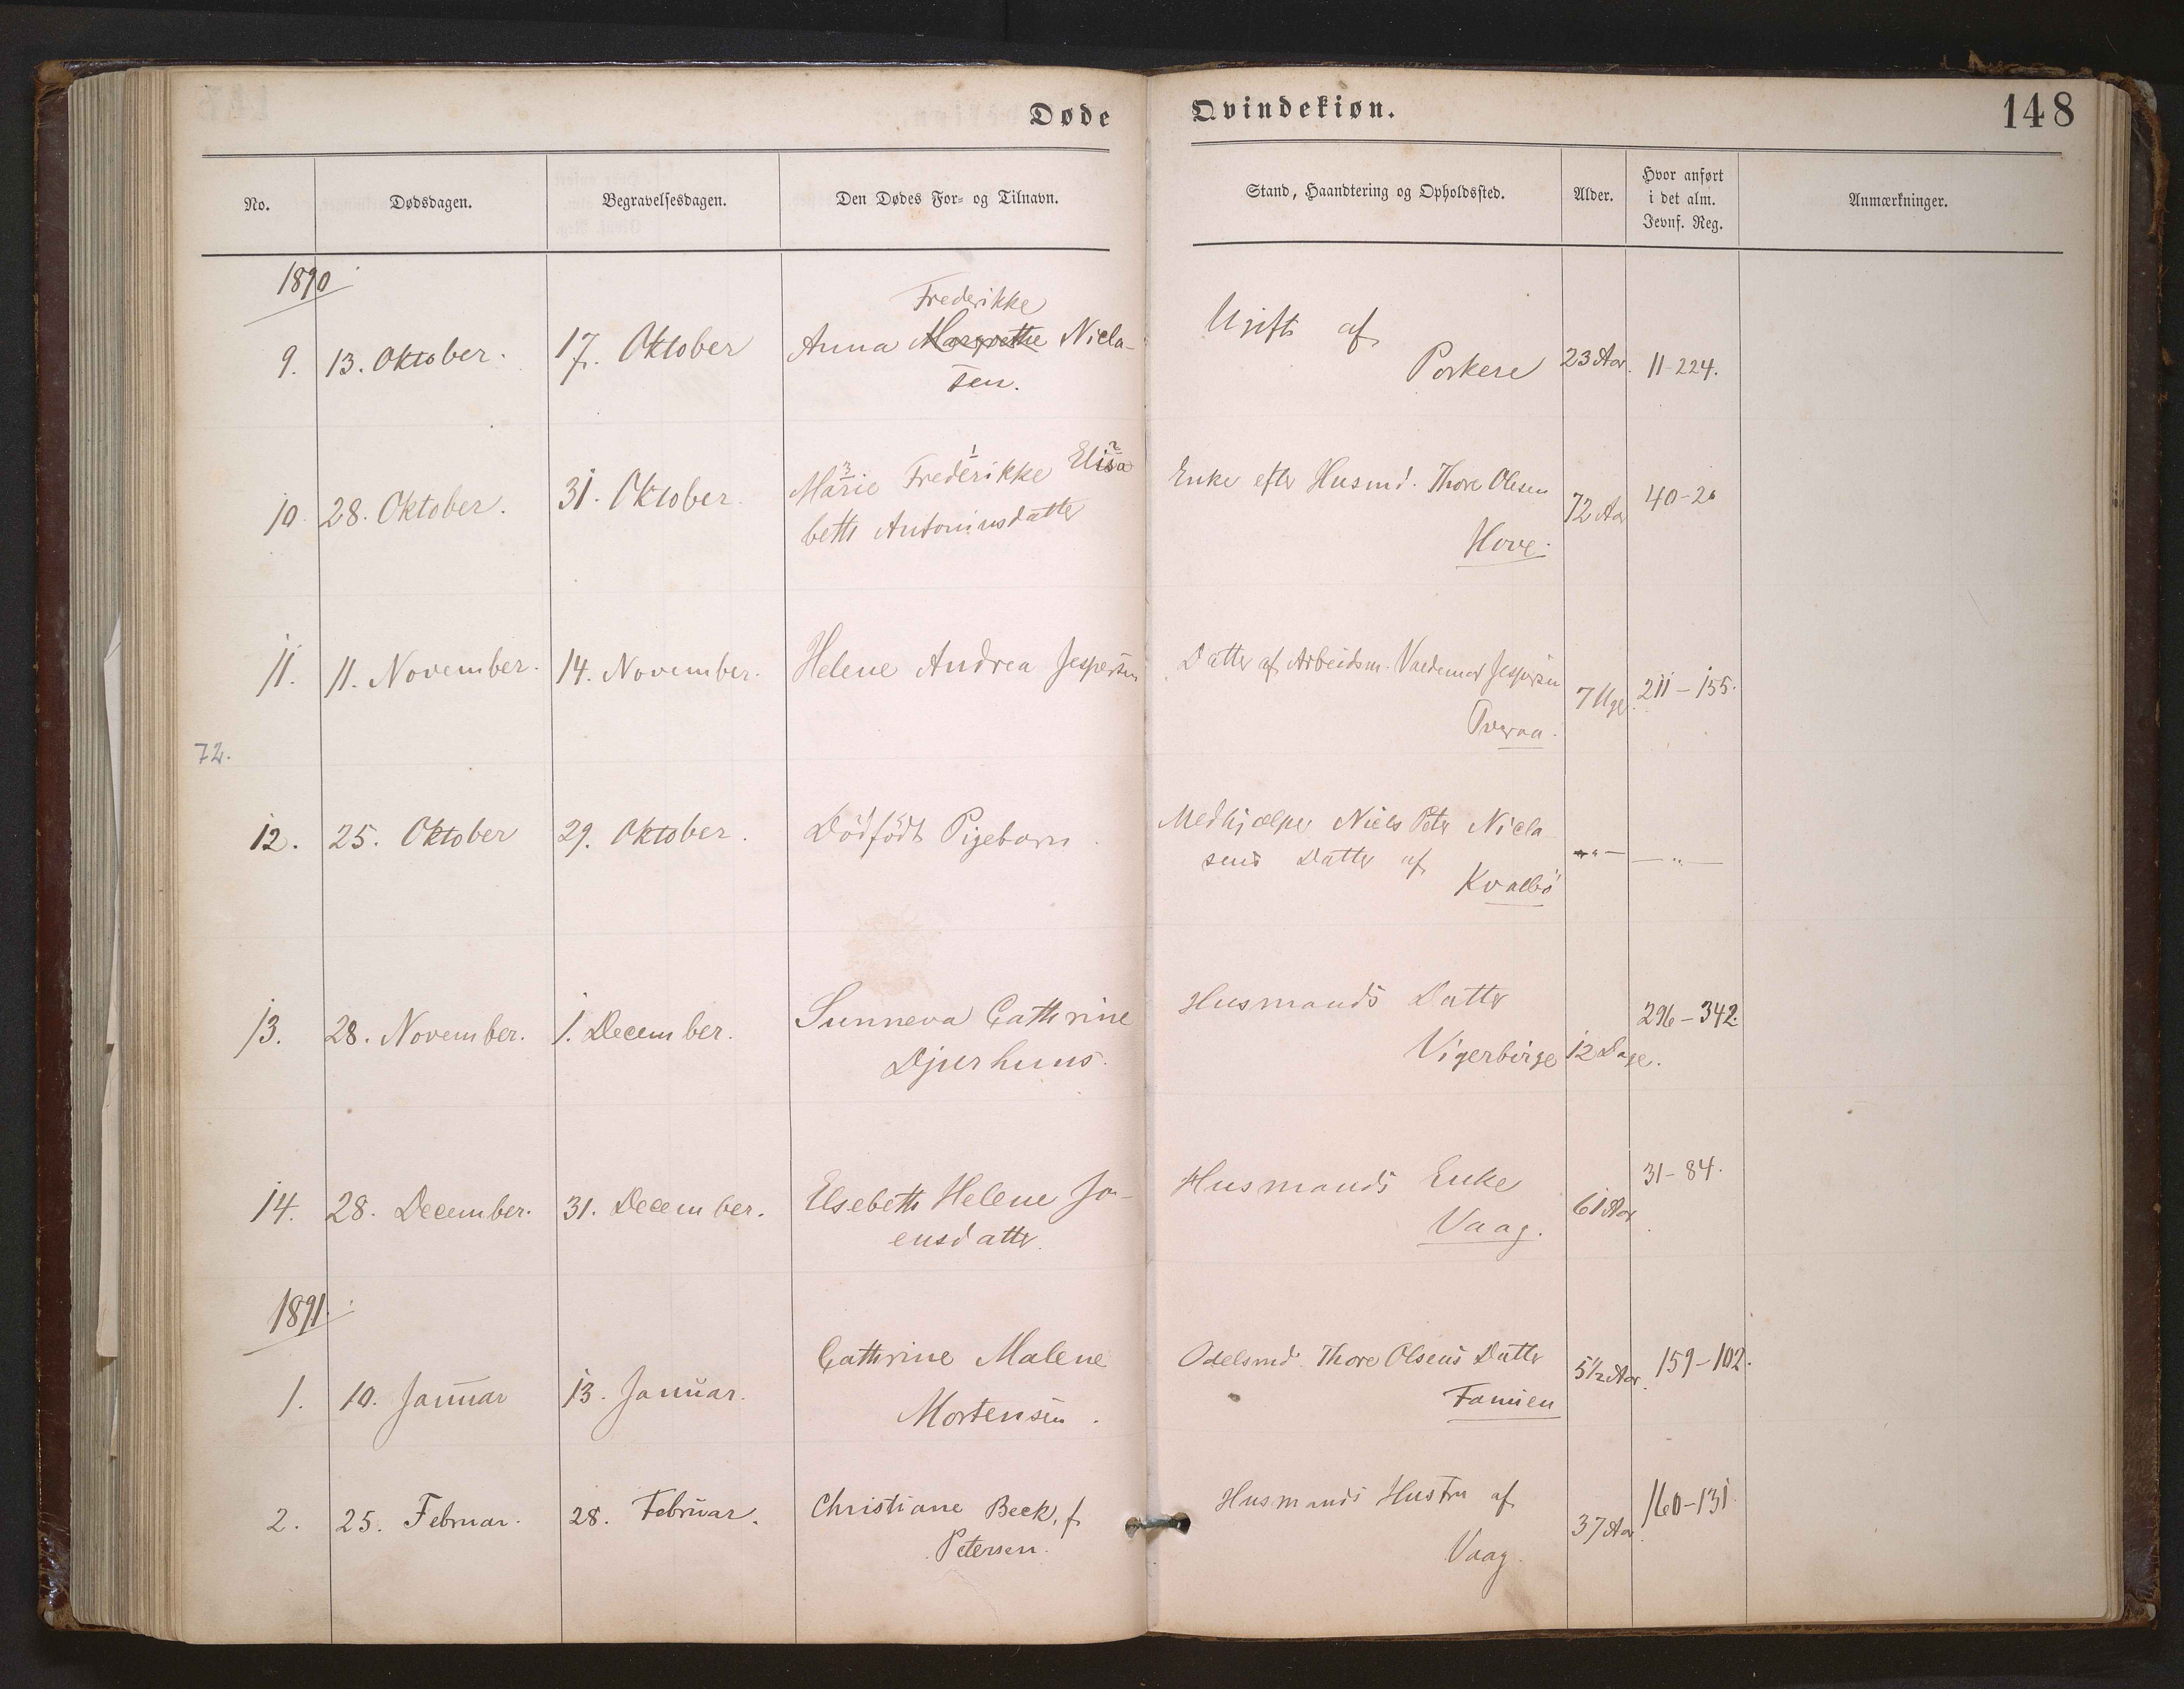 Døde Qvindekiøn. 148
No. Dødsdagen. Begravelsesdagen. Den Dødes For- og Tilnavn. Stand, Haandtering og Opholdssted. Alder. Hvor anført i det alm. Jevnf. Reg. Anmærkninger.
1890
Frederikke
9. 13. Oktober. 17. Oktober Anna Margrethe Nicla- Ugift af
sen. Porkere 23 Aar. 11-224.
10. 28. Oktober. 31. Oktober. Marie Frederikke Elisa Enke efter Husmd. Thore Olesen 72 Aar 40-2
3 1 2
beth Antoniusdatter Hove.
11. 11. November. 14. November. Helene Andrea Jespersen Datter af Arbeidsm. Valdemar Jespersen 7 Uge 211-155.
Tveraa.
72.
12. 25. Oktober 29. Oktober. Dödfödt Pigebarn. Medhjælper Niels Peter Nicla
sens Datter af Kvalbö — " — — " —
13. 28. November. 1. December. Sunneva Cathrine Husmands Datter 296-342.
Djurhuus. Vigerbirge 12 Dage.
14. 28. December. 31. December. Elsebeth Helene Jo- Husmands Enke 61 Aar 31-84.
ensdatter. Vaag.
1891.
1. 10. Januar 13. Januar. Cathrine Malene Odelsmd. Thore Olsens Datter 5½ Aar. 159-102.
Mortensen. Famien
2. 25. Februar. 28. Februar. Christiane Beck, f. Husmands Hustru af 37 Aar. 160-131
Petersen. Vaag.